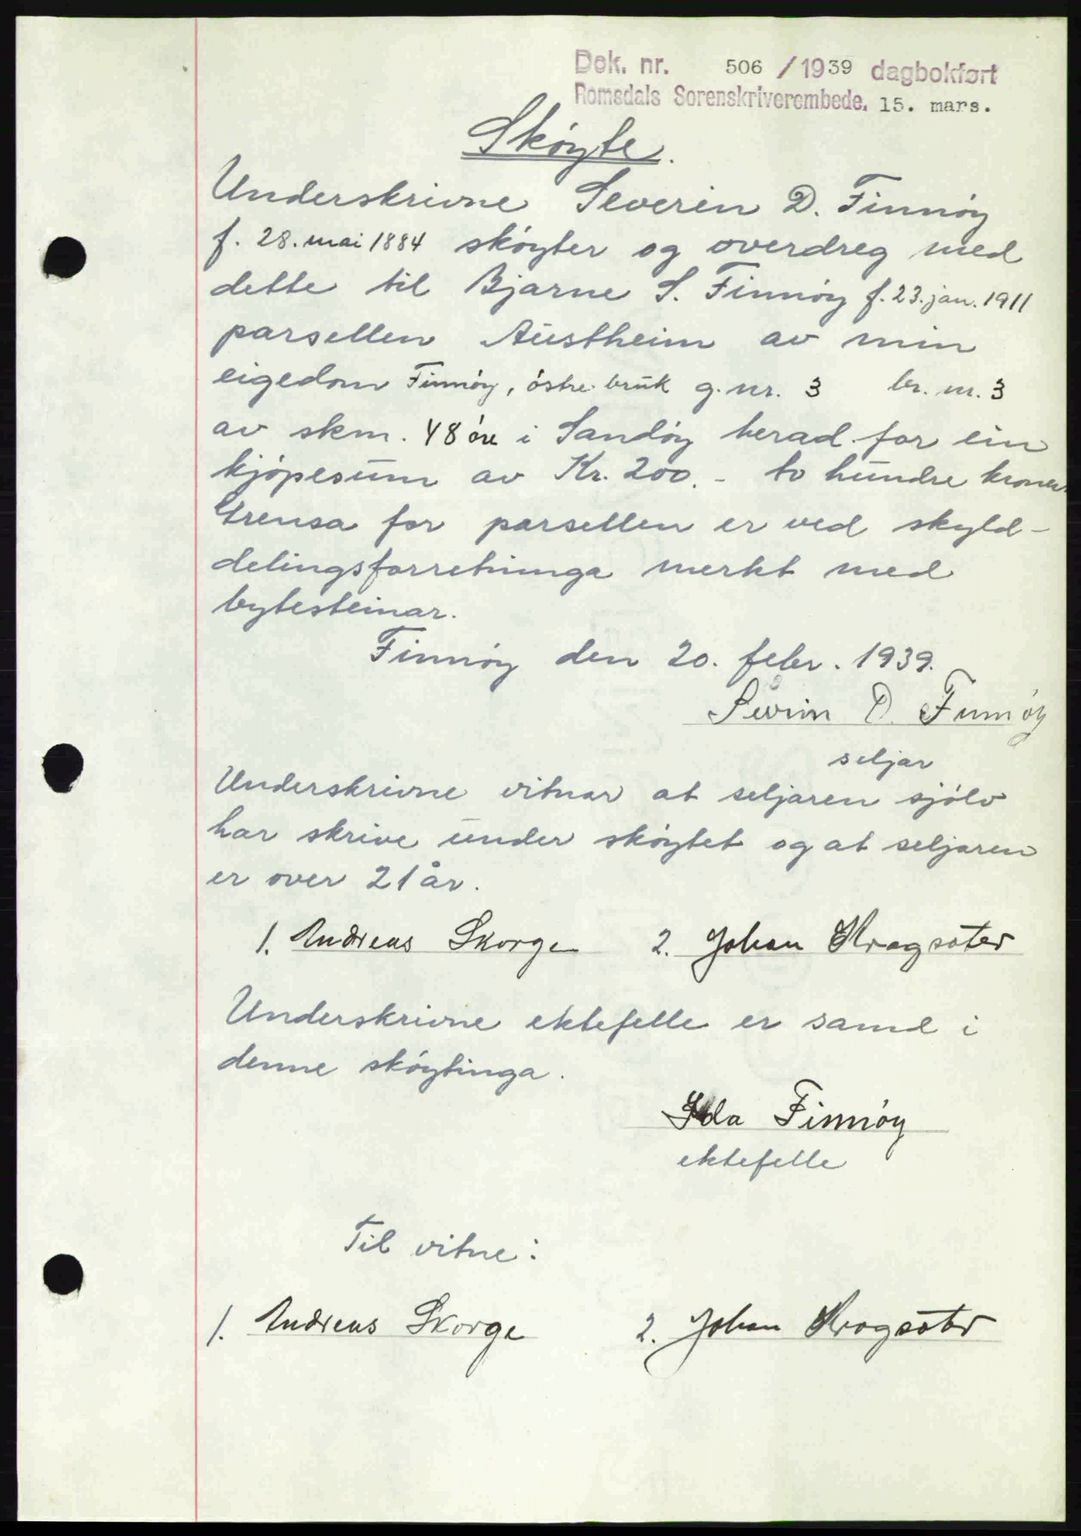 Dok. nr. 506 / 1939 dagbokført
Romsdals Sorenskriverembede. 15. mars.
Skøyte.
Underskrivne Severin D. Finnøy
f. 28. mai 1884 skøyter og overdreg med
dette til Bjarne S. Finnøy f. 23. jan. 1911
parsellen Austheim av min
eigedom Finnøy, østre bruk g. nr. 3 br. nr. 3
av skm. 48 øre i Sandøy herad for ein
kjøpesum av Kr. 200.- to hundre kroner.
Grensa for parsellen er ved skyld-
delingsforretninga merkt med
bytesteinar.
Finnøy den 20. febr. 1939.
Severin D. Finnøy
seljar
Underskrivne vitnar at seljaren sjølv
har skrive under skøytet og at seljaren
er over 21 år.
1. Andreas Skorge 2. Johan Kragsæter
Underskrivne ektefelle er samd i
denne skøytinga.
Ida Finnøy
ektefelle
Til vitne:
1. Andreas Skorge 2. Johan Kragsæter